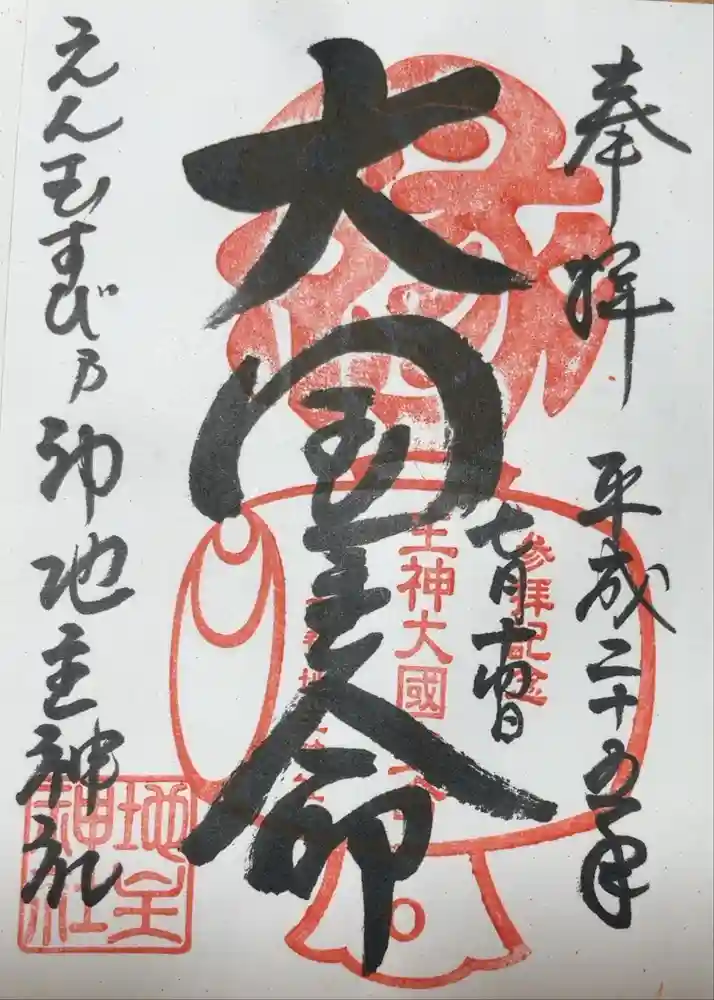 奉拝 平成二十五年
七月十四日
大国主命
えんむすび乃神地主神社
縁
参拝記念
主神大國
地主
神社